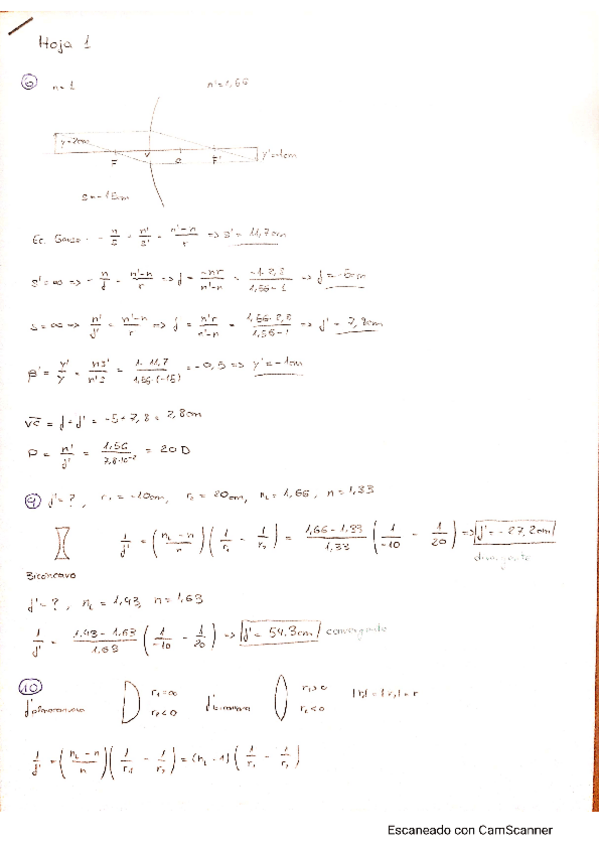 Hoja 1
6 n=1 n'=1,56
y=2cm
F V C F' y'=-1cm
s=-15cm
Ec. Gauss - n/s + n'/s' = n'-n/r => s' = 11,7cm
s'=∞ => - n/f = n'-n/r => f = -nr/n'-n = -1·2,8/1,56-1 => f=-5cm
s=∞ => n'/f' = n'-n/r => f' = n'r/n'-n = 1,56·2,8/1,56-1 => f' = 7,8cm
β' = y'/y = ns'/n's = 1·11,7/1,56·(-15) = -0,5 => y' = -1cm
VC = f+f' = -5+7,8 = 2,8cm
P = n'/f' = 1,56/7,8·10⁻² = 20D
9 f'=?, r₁ = -10cm, r₂ = 20cm, nL = 1,66, n = 1,33
1/f' = (nL-n/n)(1/r₁ - 1/r₂) = 1,66-1,33/1,33 (1/-10 - 1/20) => f' = -27,2cm
divergente
Bicóncavo
f'=?, nL = 1,43 n=1,63
1/f' = 1,43-1,63/1,63 (1/-10 - 1/20) => f' = 54,3cm convergente
10
r₁=∞ r₁>0
r₂<0 r₂<0
1/f' = (nL-n/n)(1/r₁ - 1/r₂) = (nL-1)(1/r₁ - 1/r₂)
Escaneado con CamScanner